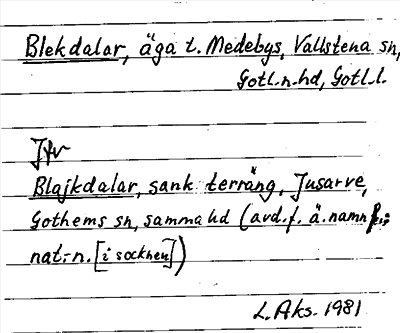 Blekdalar, äga t. Medebys, Vallstena sn,
Gotl.n.hd, Gotl.l.
Jfr
Blajkdalar, sank terräng, Jusarve,
Gothems sn, samma hd (avd.f. ä.namn
nat.-n. [i socknen])
L.Aks. 1981